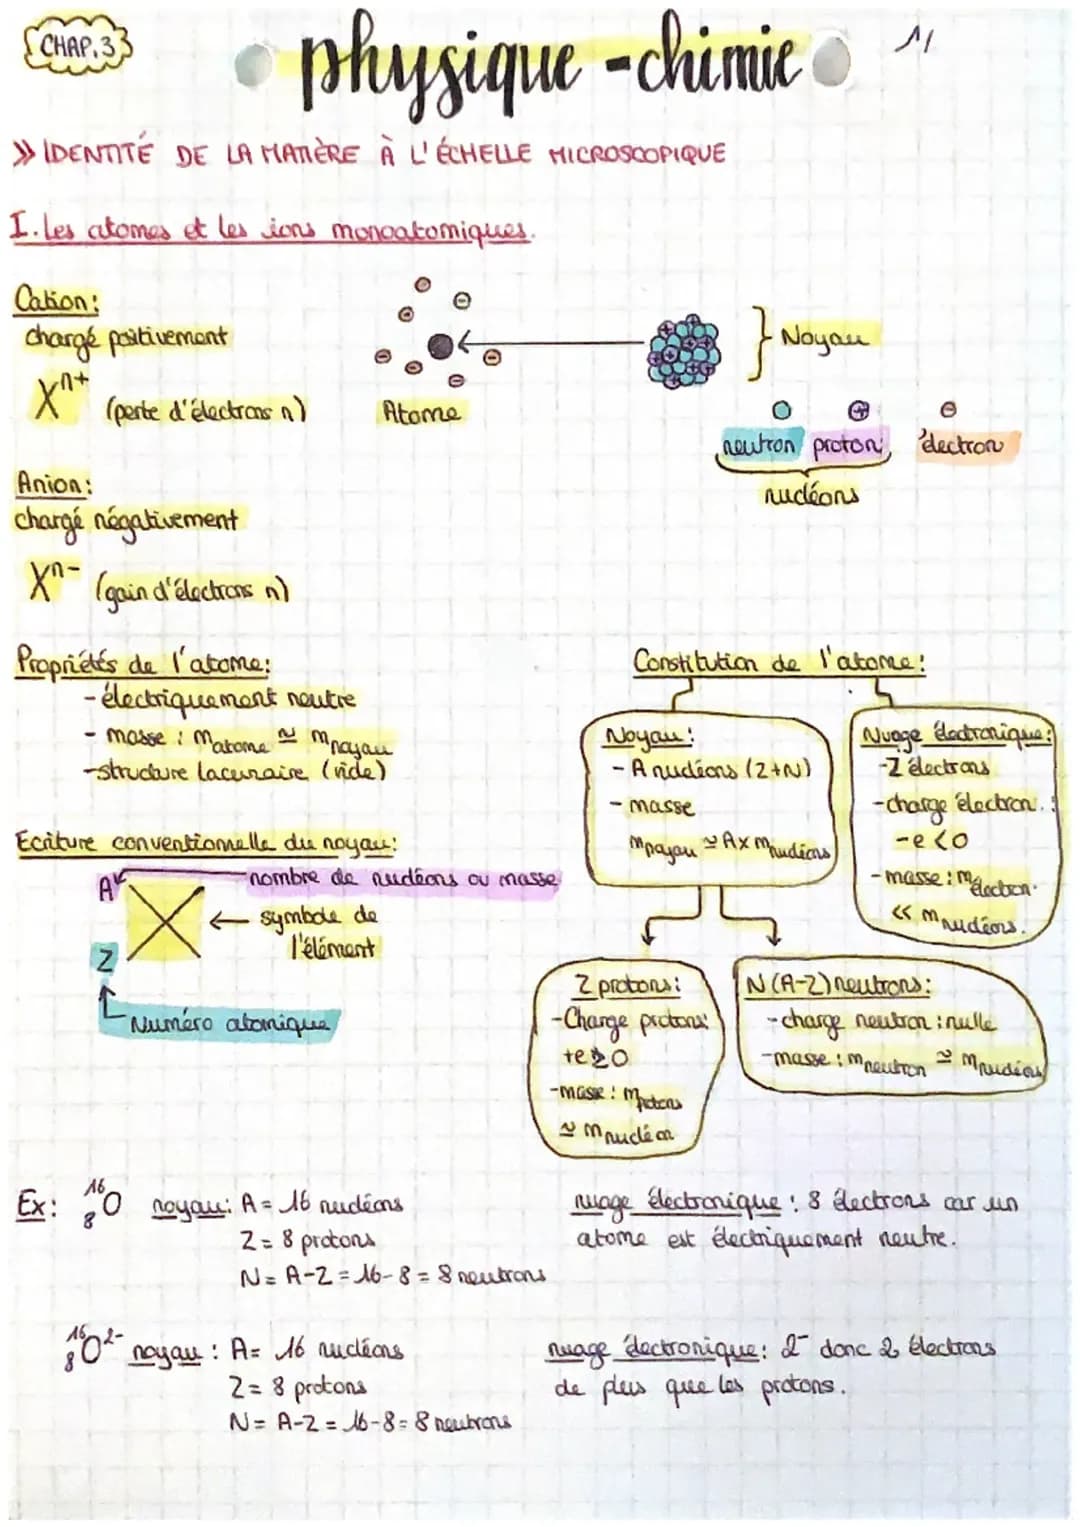 CHAP.3
physique-chimie
1/
>> IDENTITÉ DE LA MATIÈRE À L'ÉCHELLE MICROSCOPIQUE
I. Les atomes et les ions monoatomiques.
Cation:
chargé positivement
Xⁿ⁺ (perte d'électrons n)
Atome
Noyau
neutron proton électron
nucléons
Anion:
chargé négativement
Xⁿ⁻ (gain d'électrons n)
Propriétés de l'atome:
- électriquement neutre
- masse : m atome ≃ m noyau
- structure lacunaire (vide)
Ecriture conventionnelle du noyau:
A
nombre de nucléons ou masse
X
symbole de
l'élément
Z
Numéro atomique
Constitution de l'atome:
Noyau:
- A nucléons (Z+N)
- masse
m noyau ≃ A x m nucléons
Nuage électronique:
- Z électrons
- charge électron :
-e<0
- masse : m électron.
<< m nucléons.
Z protons:
- Charge protons:
+e≥0
- masse : m protons
≃ m nucléon
N (A-Z) neutrons:
- charge neutron : nulle
- masse : m neutron ≃ m nucléons
Ex: ¹⁶₈O noyau: A = 16 nucléons
Z = 8 protons
N = A-Z = 16-8 = 8 neutrons
nuage électronique : 8 électrons car un
atome est électriquement neutre.
¹⁶₈O²⁻ noyau : A= 16 nucléons
Z= 8 protons
N= A-Z = 16-8= 8 neutrons
nuage électronique: 2⁻ donc 2 électrons
de plus que les protons.